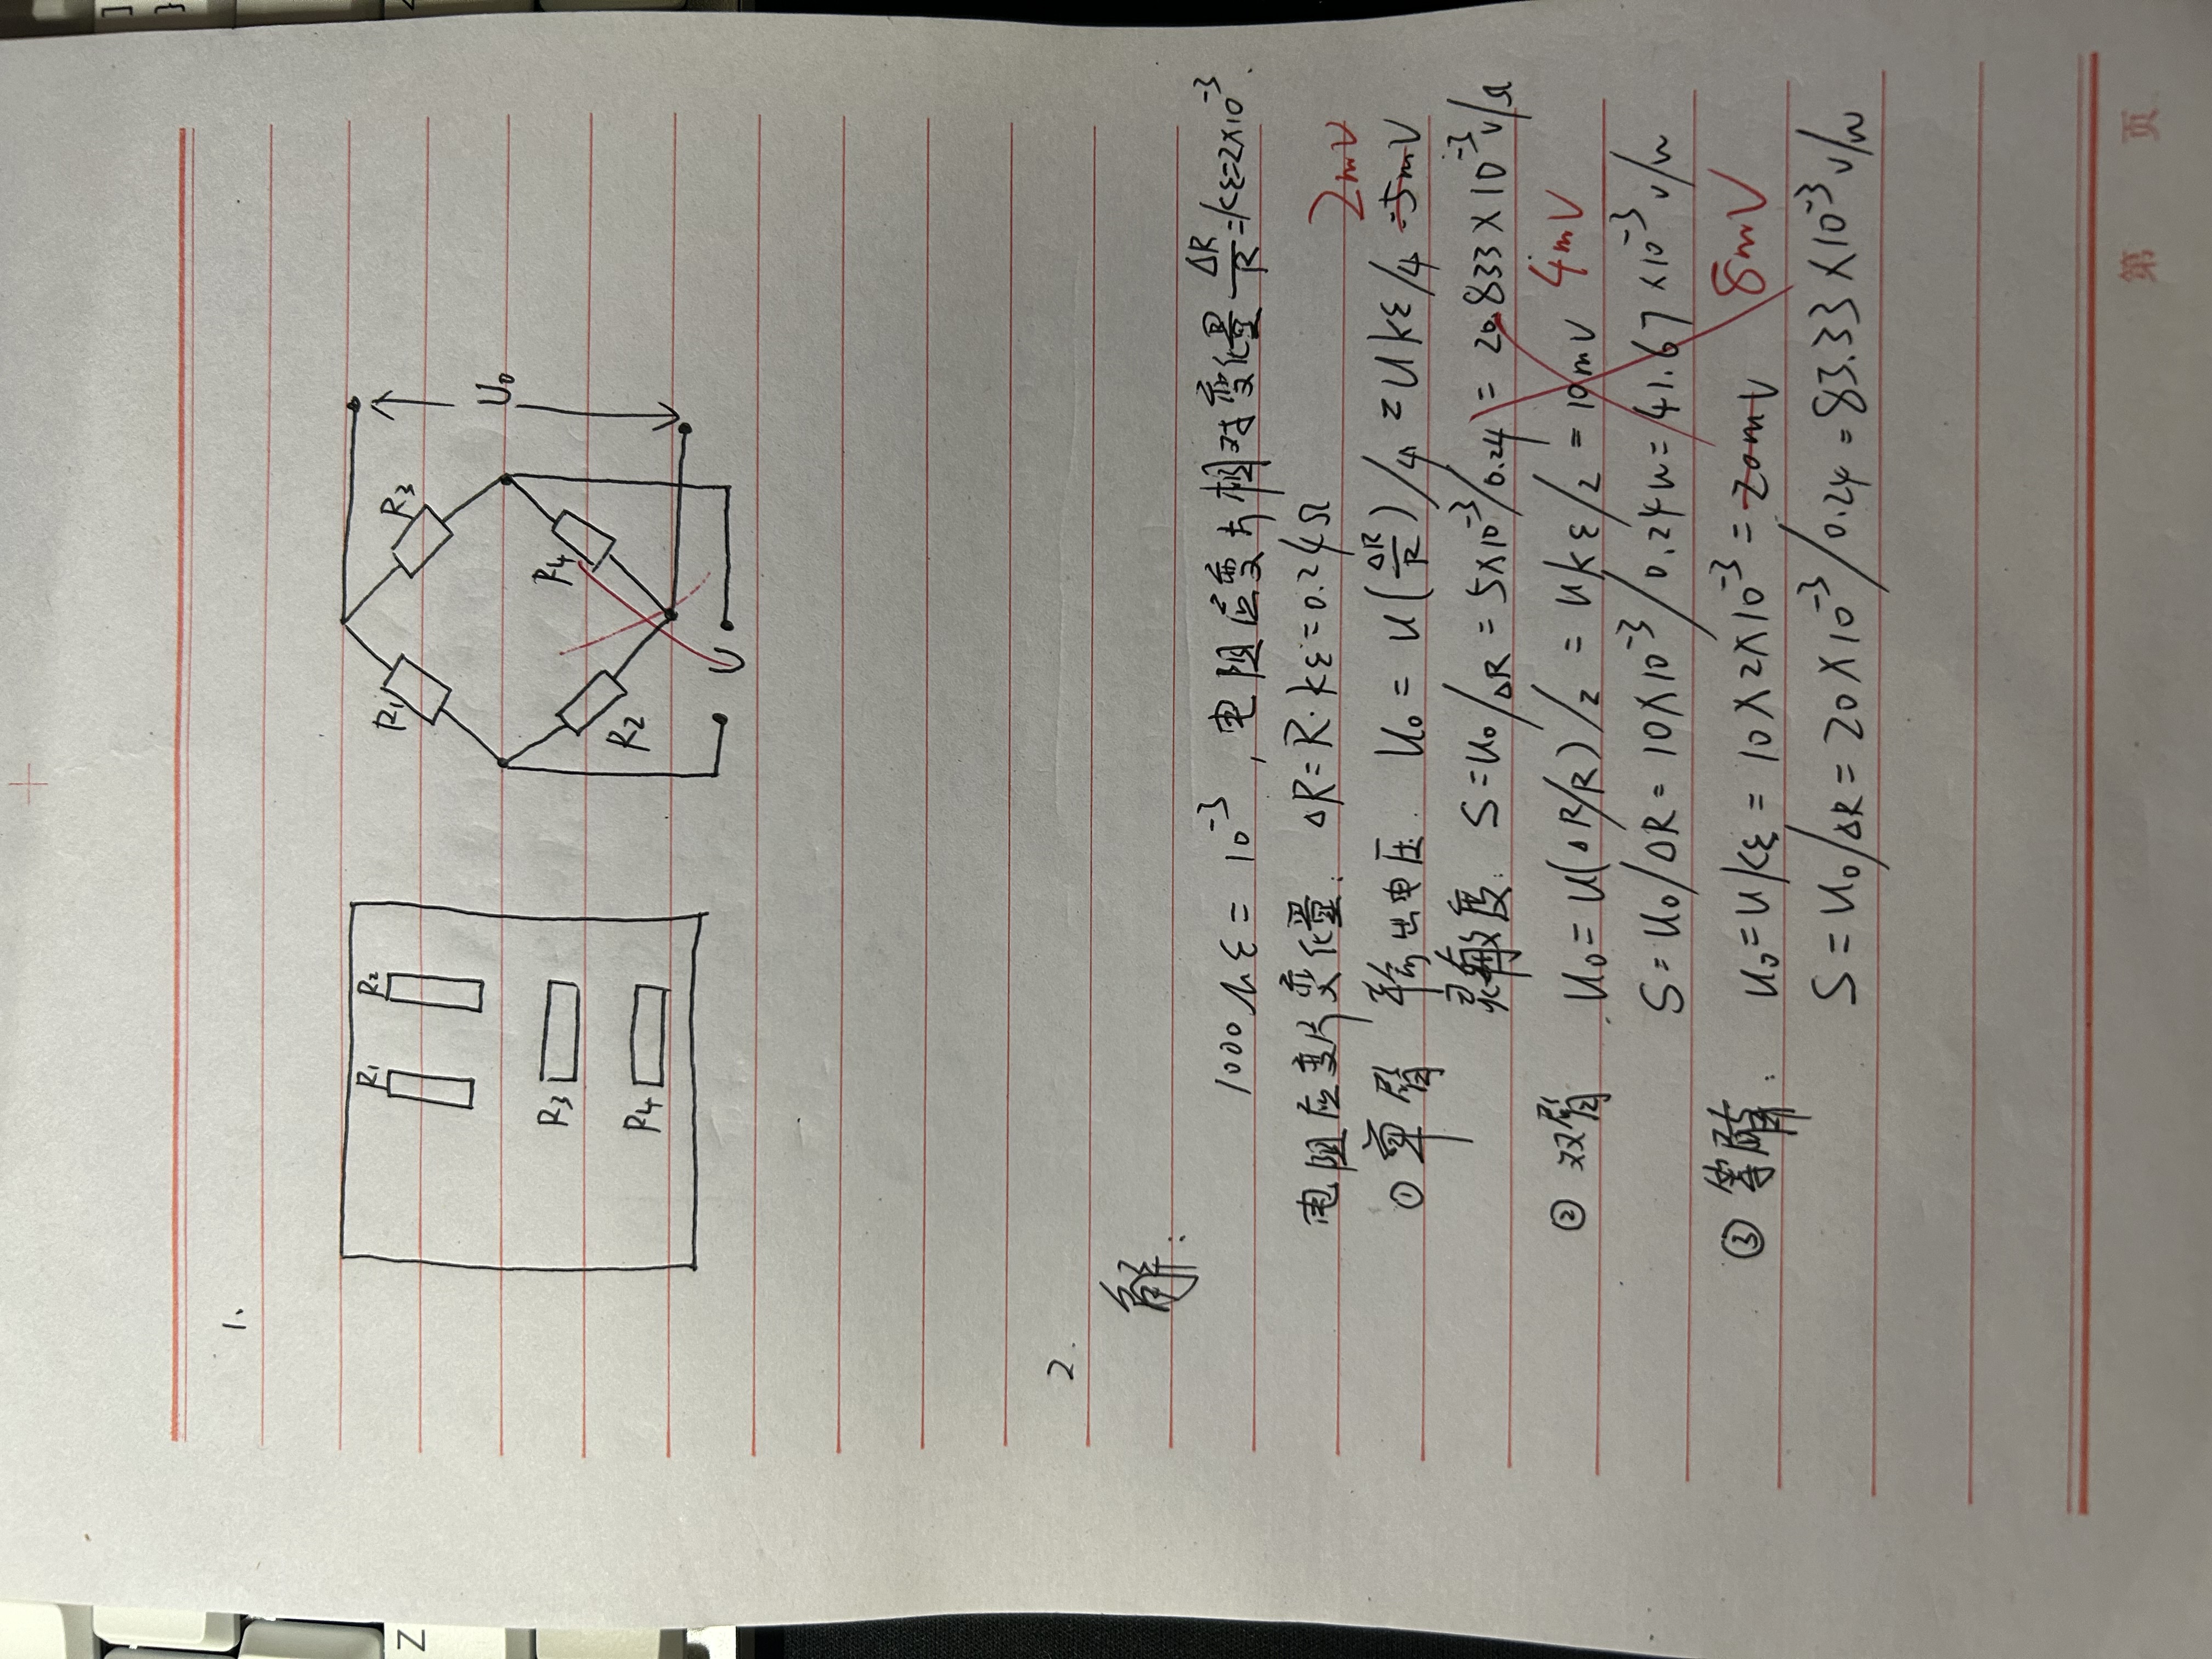 1.
R₁ R₂
R₃
R₄
R₁ R₃
R₂ R₄
U₀
U
2.
解:
1000με = 10⁻³, 电阻应变片相对变化量 ΔR/R = kε = 2×10⁻³.
电阻应变片变化量: ΔR = R·kε = 0.24Ω
2mV
① 单臂 输出电压. U₀ = U(ΔR/R)/4 = Ukε/4 = 5mV
灵敏度: S = U₀/ΔR = 5×10⁻³/0.24 = 20.833×10⁻³ V/Ω
② 双臂 U₀ = U(ΔR/R)/2 = Ukε/2 = 10mV 4mV
S = U₀/ΔR = 10×10⁻³/0.24w = 41.67×10⁻³ v/w
③ 等臂: U₀ = Ukε = 10×2×10⁻³ = 20mV 8mV
S = U₀/ΔR = 20×10⁻³/0.24 = 83.33×10⁻³ v/w
第 页
Z